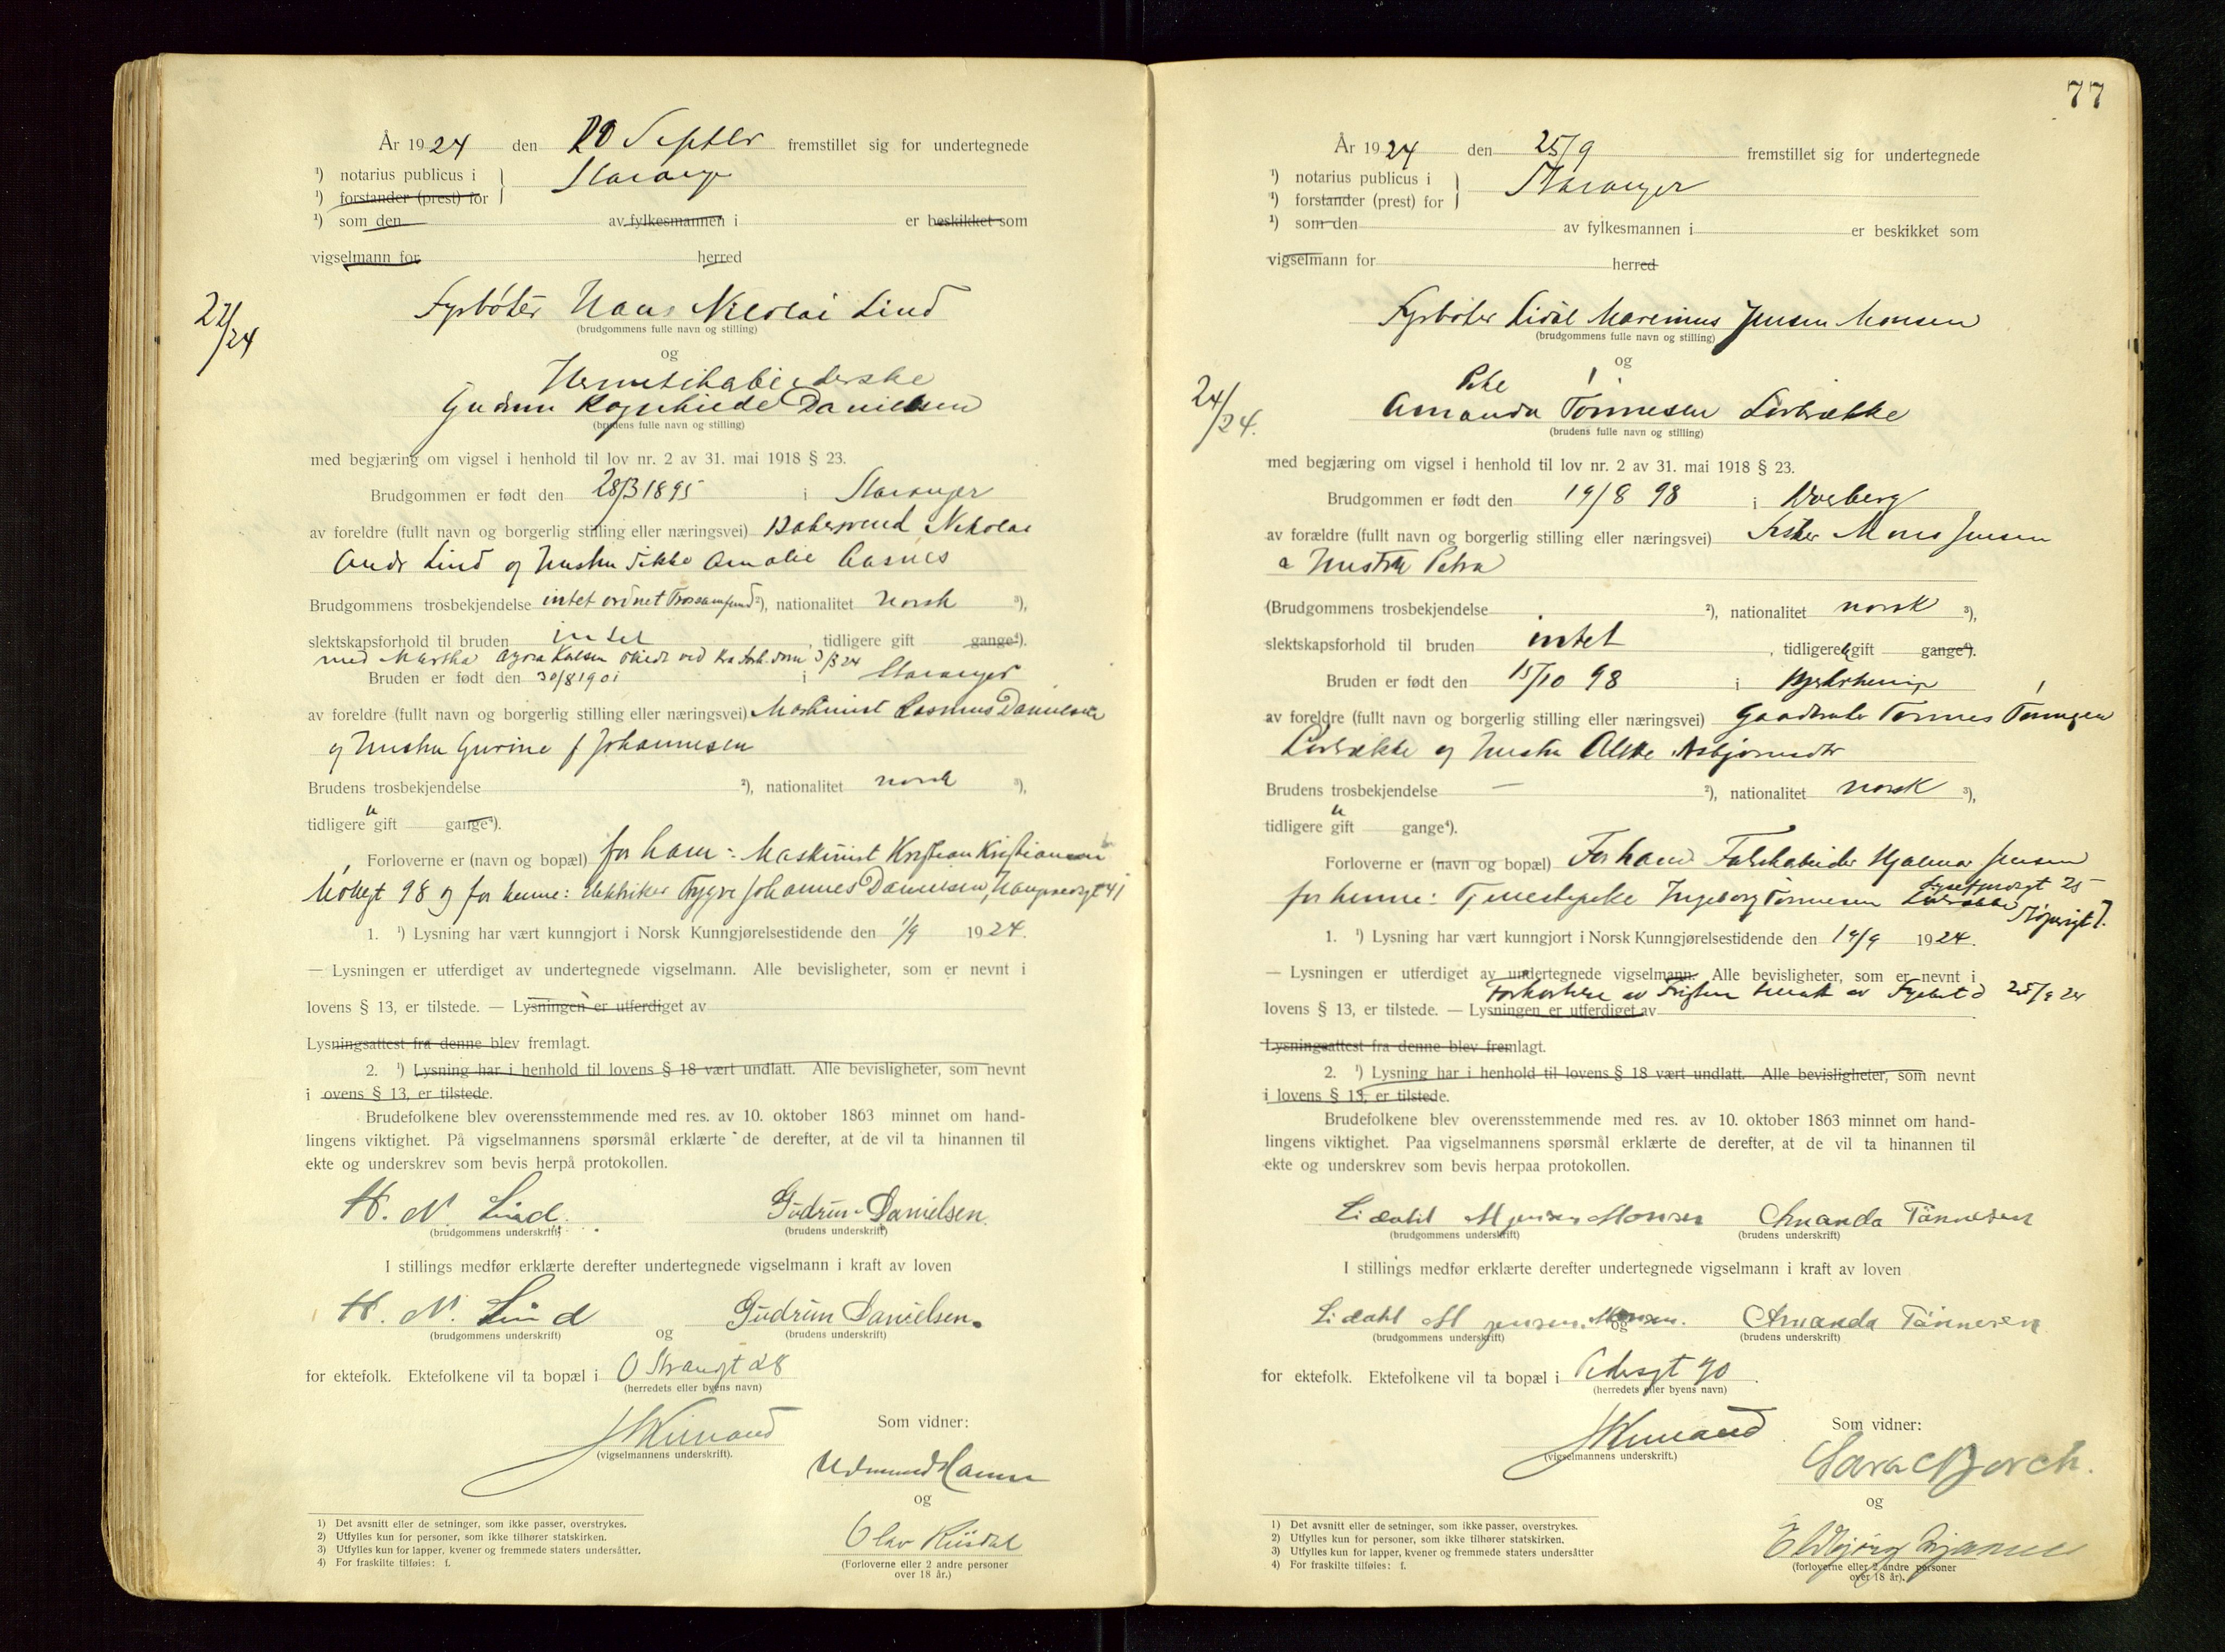 År 1924 den 20 Septbr fremstillet sig for undertegnede
¹) notarius publicus i Stavanger
¹) forstander (prest) for
¹) som den av fylkesmannen i er beskikket som
vigselmann for herred
22/24
Fyrbøter Hans Nikolai Lind
(brudgommens fulle navn og stilling)
og
Gudrun Danielsen
(brudens fulle navn og stilling)
med begjæring om vigsel i henhold til lov nr. 2 av 31. mai 1918 § 23.
Brudgommen er født den 28/3 1895 i Stavanger
av foreldre (fullt navn og borgerlig stilling eller næringsvei) Nikolai
Andr Lind og Hustru Amalie Aasnes
Brudgommens trosbekjendelse intet ordnet Trossamfund ²), nationalitet norsk ³),
slektskapsforhold til bruden intet , tidligere gift gange⁴).
med Martha ved 3/3 24
Bruden er født den 30/8 1901 i Stavanger
av foreldre (fullt navn og borgerlig stilling eller næringsvei) Maskinist Rasmus Danielsen
og Hustru Gurine f Johannesen
Brudens trosbekjendelse ²), nationalitet norsk ³),
tidligere u gift gange⁴).
Forloverne er (navn og bopæl) for ham: Maskinist Kristian Kristiansen
98 og for henne: Elektriker Trygve Johannes Danielsen, 41
1. ¹) Lysning har vært kunngjort i Norsk Kunngjørelsestidende den 1/9 1924.
— Lysningen er utferdiget av undertegnede vigselmann. Alle bevisligheter, som er nevnt i
lovens § 13, er tilstede. — Lysningen er utferdiget av
Lysningsattest fra denne blev fremlagt.
2. ¹) Lysning har i henhold til lovens § 18 vært undlatt. Alle bevisligheter, som nevnt
i ovens § 13, er tilstede.
Brudefolkene blev overensstemmende med res. av 10. oktober 1863 minnet om hand-
lingens viktighet. På vigselmannens spørsmål erklærte de derefter, at de vil ta hinannen til
ekte og underskrev som bevis herpå protokollen.
H. N. Lind. Gudrun Danielsen.
(brudgommens underskrift) (brudens underskrift)
I stillings medfør erklærte derefter undertegnede vigselmann i kraft av loven
H. N. Lind og Gudrun Danielsen.
(brudgommens underskrift) (brudens underskrift)
for ektefolk. Ektefolkene vil ta bopæl i Ø Strandgt 28
(herredets eller byens navn)
(vigselmannens underskrift).
Som vidner:
og
Olav
(Forloverne eller 2 andre personer
over 18 år.)
1) Det avsnitt eller de setninger, som ikke passer, overstrykes.
2) Utfylles kun for personer, som ikke tilhører statskirken.
3) Utfylles kun for lapper, kvener og fremmede staters undersåtter.
4) For fraskilte tilføies: f.
77
År 1924 den 25/9 fremstillet sig for undertegnede
¹) notarius publicus i Stavanger
¹) forstander (prest) for
¹) som den av fylkesmannen i er beskikket som
vigselmann for herred
Fyrbøter Lidal Marinius Jensen Monsen
(brudgommens fulle navn og stilling)
og
24/24.
Pike
Amanda Tønnesen Lovbrække
(brudens fulle navn og stilling)
med begjæring om vigsel i henhold til lov nr. 2 av 31. mai 1918 § 23.
Brudgommen er født den 19/8 98 i
av forældre (fullt navn og borgerlig stilling eller næringsvei) Fisker Mons Jensen
a Hustru Petra
(Brudgommens trosbekjendelse ²), nationalitet norsk ³),
slektskapsforhold til bruden intet , tidligere u gift gange⁴).
Bruden er født den 15/10 98 i
av foreldre (fullt navn og borgerlig stilling eller næringsvei) Gaardbruker Tønnes Tønnesen
Lovbrække og Hustru Asbjørnsdtr
Brudens trosbekjendelse — ²), nationalitet norsk ³),
tidligere u gift gange⁴).
Forloverne er (navn og bopæl) For ham Fabrikarbeider Hjalmar Jensen
25
for henne: Tjenestepike Ingeborg Tønnesen 7.
1. ¹) Lysning har vært kunngjort i Norsk Kunngjørelsestidende den 19/9 1924.
— Lysningen er utferdiget av undertegnede vigselmann. Alle bevisligheter, som er nevnt i
Forkortelse av Fristen av 25/9 24
lovens § 13, er tilstede. — Lysningen er utferdiget av
Lysningsattest fra denne blev fremlagt.
2. ¹) Lysning har i henhold til lovens § 18 vært undlatt. Alle bevisligheter, som nevnt
i lovens § 13, er tilstede.
Brudefolkene blev overensstemmende med res. av 10. oktober 1863 minnet om hand-
lingens viktighet. Paa vigselmannens spørsmål erklærte de derefter, at de vil ta hinannen til
ekte og underskrev som bevis herpaa protokollen.
Lidahl M Jensen Monsen Amanda Tönnesen
(brudgommens underskrift) (brudens underskrift)
I stillings medfør erklærte derefter undertegnede vigselmann i kraft av loven
Lidahl M Jensen Monsen. og Amanda Tönnesen
(brudgommens underskrift) (brudens underskrift)
for ektefolk. Ektefolkene vil ta bopæl i Pedersgt 90
(herredets eller byens navn)
(vigselmannens underskrift.)
Som vidner:
Sara Borch.
og
(forloverne eller 2 andre personer
over 18 år).
1) Det avsnitt eller de setninger, som ikke passer, overstrykes.
2) Utfylles kun for personer, som ikke tilhører statskirken.
3) Utfylles kun for lapper, kvener og fremmede staters undersåtter
4) For fraskilte tilføies: f.